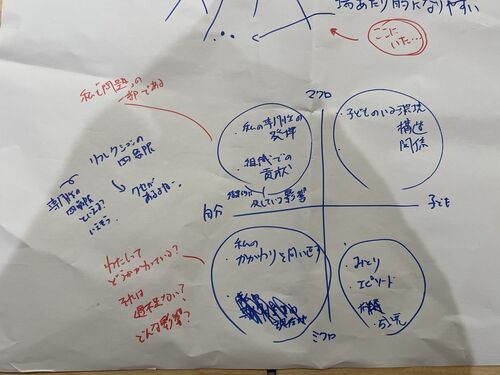 場あたり的になりやすい
ここに
いた…
私も「問題」の
一部である
マクロ
・私の専門性の
発揮
・組織での
貢献
及ぼしている影響
・子どものいる環境
構造
関係
リフレクションの
四象限
専門性の
四象限
クセが
自分
子ども
・私の
かかわりを問い直す
・みとり
エピソード
ミクロ
わたしって
どうかかわっている？
それは
過不足ない？
どんな影響？